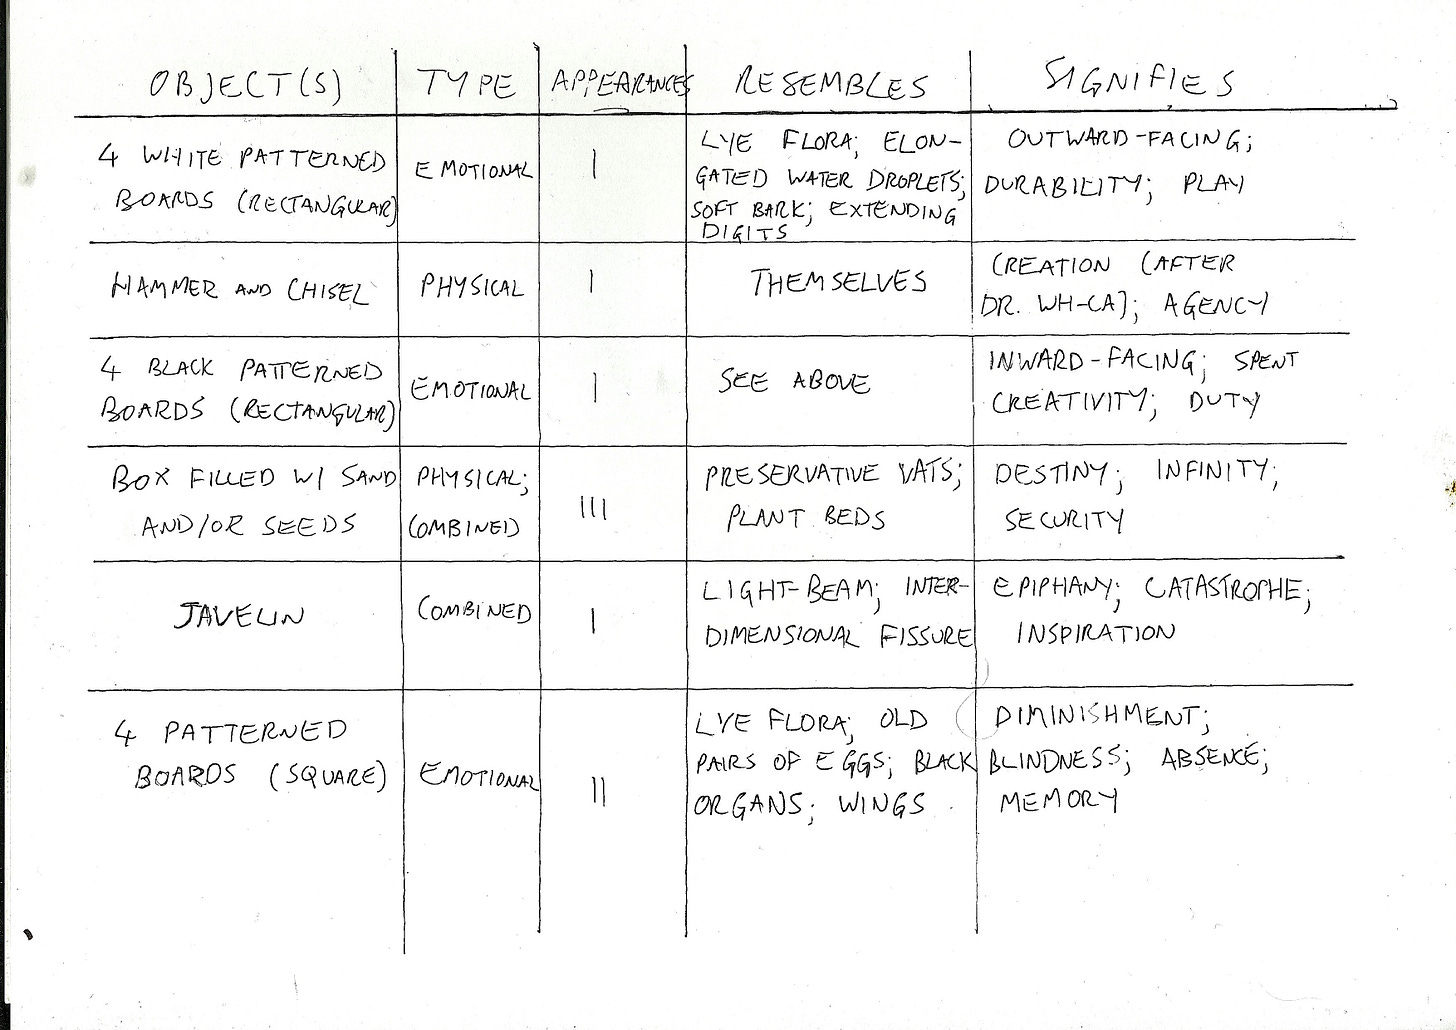 OBJECT(S) TYPE APPEARANCES RESEMBLES SIGNIFIES
4 WHITE PATTERNED
BOARDS (RECTANGULAR)
EMOTIONAL
I
LYE FLORA; ELON-
GATED WATER DROPLETS;
SOFT BARK; EXTENDING
DIGITS
OUTWARD-FACING;
DURABILITY; PLAY
HAMMER AND CHISEL
PHYSICAL
I
THEMSELVES
CREATION (AFTER
DR. WH-CA); AGENCY
4 BLACK PATTERNED
BOARDS (RECTANGULAR)
EMOTIONAL
I
SEE ABOVE
INWARD-FACING; SPENT
CREATIVITY; DUTY
BOX FILLED W/ SAND
AND/OR SEEDS
PHYSICAL;
COMBINED
III
PRESERVATIVE VATS;
PLANT BEDS
DESTINY; INFINITY;
SECURITY
JAVELIN
COMBINED
I
LIGHT-BEAM; INTER-
DIMENSIONAL FISSURE
EPIPHANY; CATASTROPHE;
INSPIRATION
4 PATTERNED
BOARDS (SQUARE)
EMOTIONAL
II
LYE FLORA; OLD
PAIRS OF EGGS; BLACK
ORGANS; WINGS
DIMINISHMENT;
BLINDNESS; ABSENCE;
MEMORY